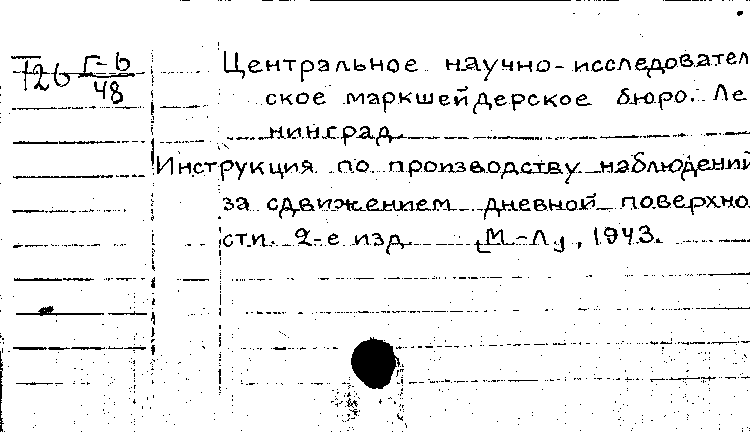 Т26 Г-6/48
Центральное научно-исследовател
ское маркшейдерское бюро. Ле
нинград.
Инструкция по производству наблюдений
за сдвижением дневной поверхно
сти. 2-е изд. [М.-Л], 1943.